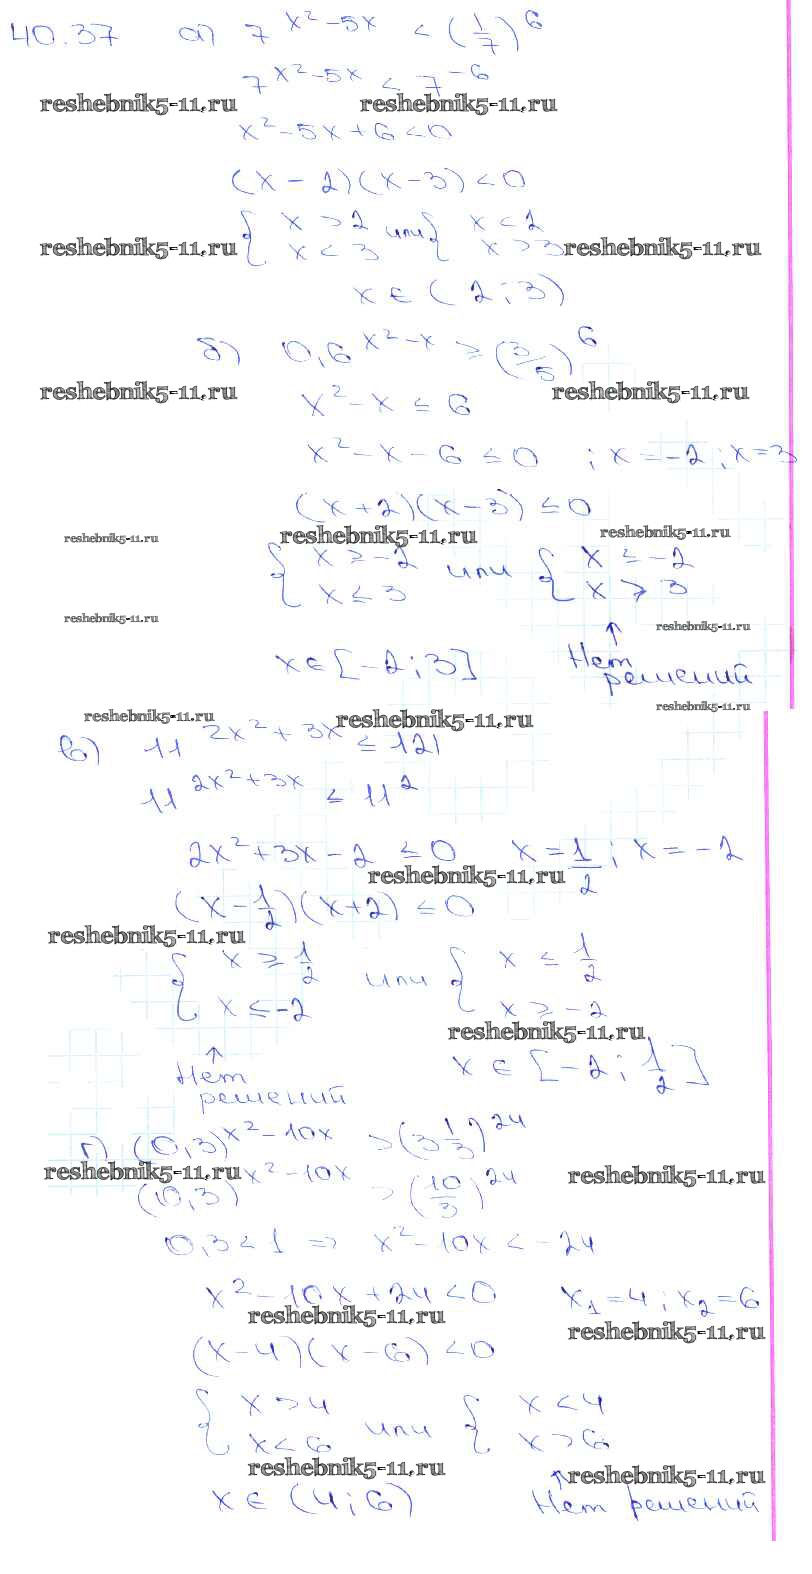 40.37 а) 7^(x²-5x) < (1/7)^6
7^(x²-5x) < 7^(-6)
reshebnik5-11.ru reshebnik5-11.ru
x²-5x+6<0
(x-2)(x-3)<0
{ x>2 или { x<2
reshebnik5-11.ru x<3 x>3 reshebnik5-11.ru
x∈(2;3)
б) 0,6^(x²-x) ≥ (3/5)^6
reshebnik5-11.ru reshebnik5-11.ru
x²-x ≤ 6
x²-x-6 ≤ 0 ; x=-2 ; x=3
(x+2)(x-3) ≤ 0
reshebnik5-11.ru reshebnik5-11.ru reshebnik5-11.ru
{ x ≥ -2 или { x ≤ -2
x ≤ 3 x ≥ 3
reshebnik5-11.ru reshebnik5-11.ru
↑
x∈[-2;3] Нет
решений
reshebnik5-11.ru reshebnik5-11.ru reshebnik5-11.ru
в) 11^(2x²+3x) ≤ 121
11^(2x²+3x) ≤ 11²
2x²+3x-2 ≤ 0 x=1/2 ; x=-2
reshebnik5-11.ru
(x-1/2)(x+2) ≤ 0
reshebnik5-11.ru
{ x ≥ 1/2 или { x ≤ 1/2
x ≤ -2 x ≥ -2
reshebnik5-11.ru
↑
Нет x∈[-2;1/2]
решений
г) (0,3)^(x²-10x) > (3 1/3)^24
reshebnik5-11.ru reshebnik5-11.ru
(0,3)^(x²-10x) > (10/3)^24
0,3<1 ⇒ x²-10x < -24
x²-10x+24<0 x₁=4 ; x₂=6
reshebnik5-11.ru reshebnik5-11.ru
(x-4)(x-6)<0
{ x>4 или { x<4
x<6 x>6
reshebnik5-11.ru ↑ reshebnik5-11.ru
x∈(4;6) Нет решений